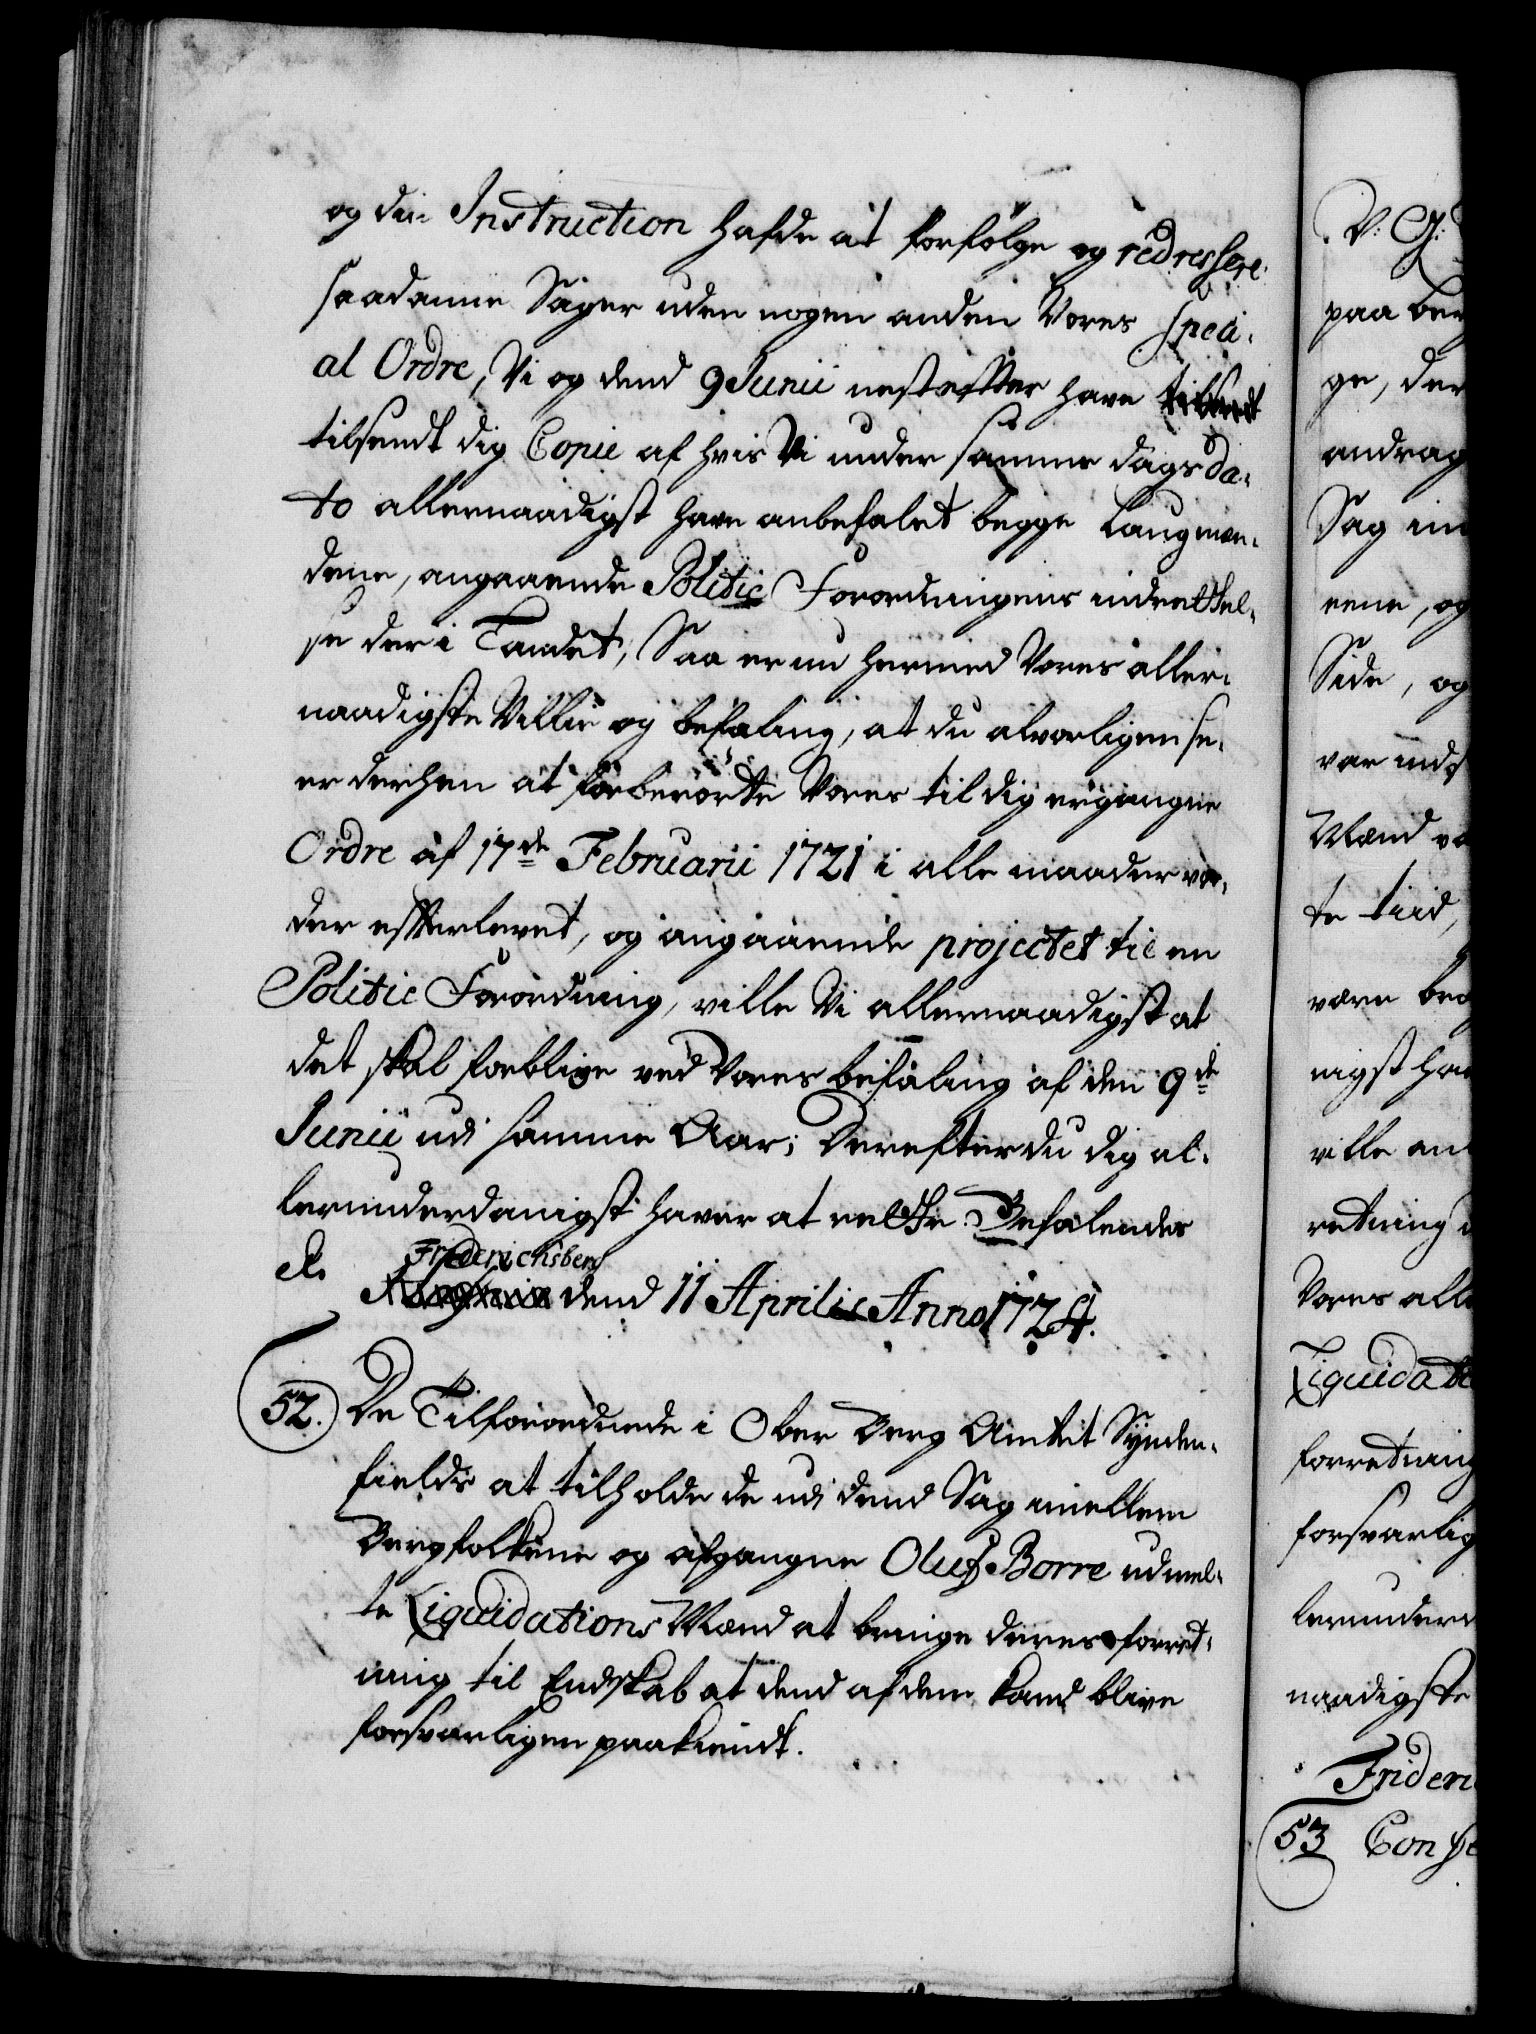 og din Instruction hafde at forfølge og redressere
saadanne Sager uden nogen anden Vores speci-
al Ordre, Vi og dend 9 Junii nestefter have
tilsendt dig Copie af hvis Vi under samme dags da-
to allernaadigst have anbefalet begge Laugmæn-
dene, angaaende Politie Forordningens indrettel-
se der i Landet, Saa er nu hermed Vores aller-
naadigste Villie og befaling, at du alvorligen se-
er derhen at forberørte Vores til dig ergangne
Ordre af 17de Februarii 1721 i alle maader vor-
der efterlevet, og angaaende projectet til en
Politie Forordning, ville Vi allernaadigst at
det skal forblive ved Vores befaling af den 9de
Junii udi samme Aar; Derefter du dig al-
lerunderdanigst haver at rette. Befalendes
etc. Friderichsberg
dend 11 Aprilis Anno 1724.
52. De Tilforordnede i Ober Berg Amtet Synden-
fields at tilholde de udi dend Sag imellem
Bergfolkene og afgangne Oluf Borre udmel-
te Liquidations Mænd at bringe deres forret-
ning til Endskab at dend af dem kand blive
forsvarligen paakiendt.
V: G:
paa
ge, der
andrag
Sag im
eene, og
Side, og
var ind
Mænd
te tiid,
være
nigst
ville
retning
Vores alle
Liquidati
forretning
forsvarlig
lerunder
naadigste
Frideri
53 Con